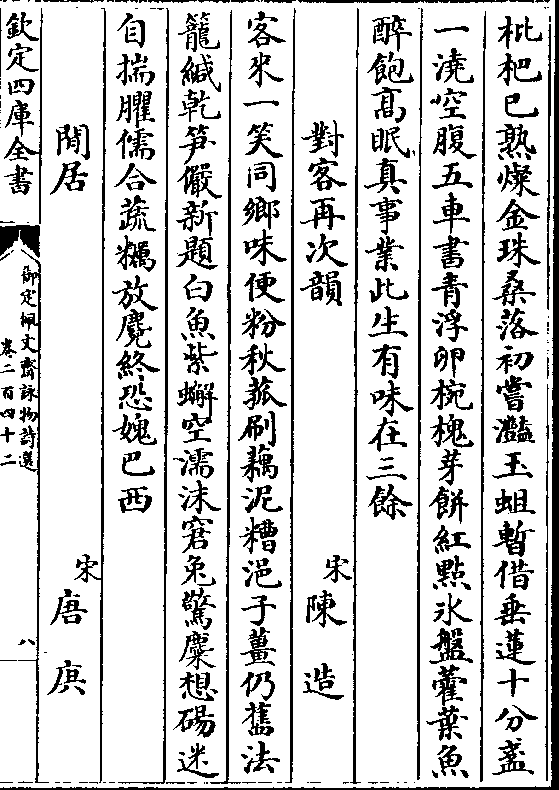 枇杷已熟燦金珠桑落初嘗灩玉蛆暫借垂蓮十分盞
一澆空腹五車書青浮卵椀槐芽餅紅點氷盤藿葉魚
醉飽髙眠真事業此生有味在三餘
對客再次韻 宋陳造
客來一笑同鄉味便粉秋菰刷藕泥糟浥子薑仍舊法
籠緘乾笋儼新題白魚紫蠏空濡沫窘兔驚麇想碭迷
自揣臞儒合蔬糲放麑終恐媿巴西
閒居 宋唐庚
欽定四庫全書
御定佩文齋詠物詩選
卷二百四十二
八